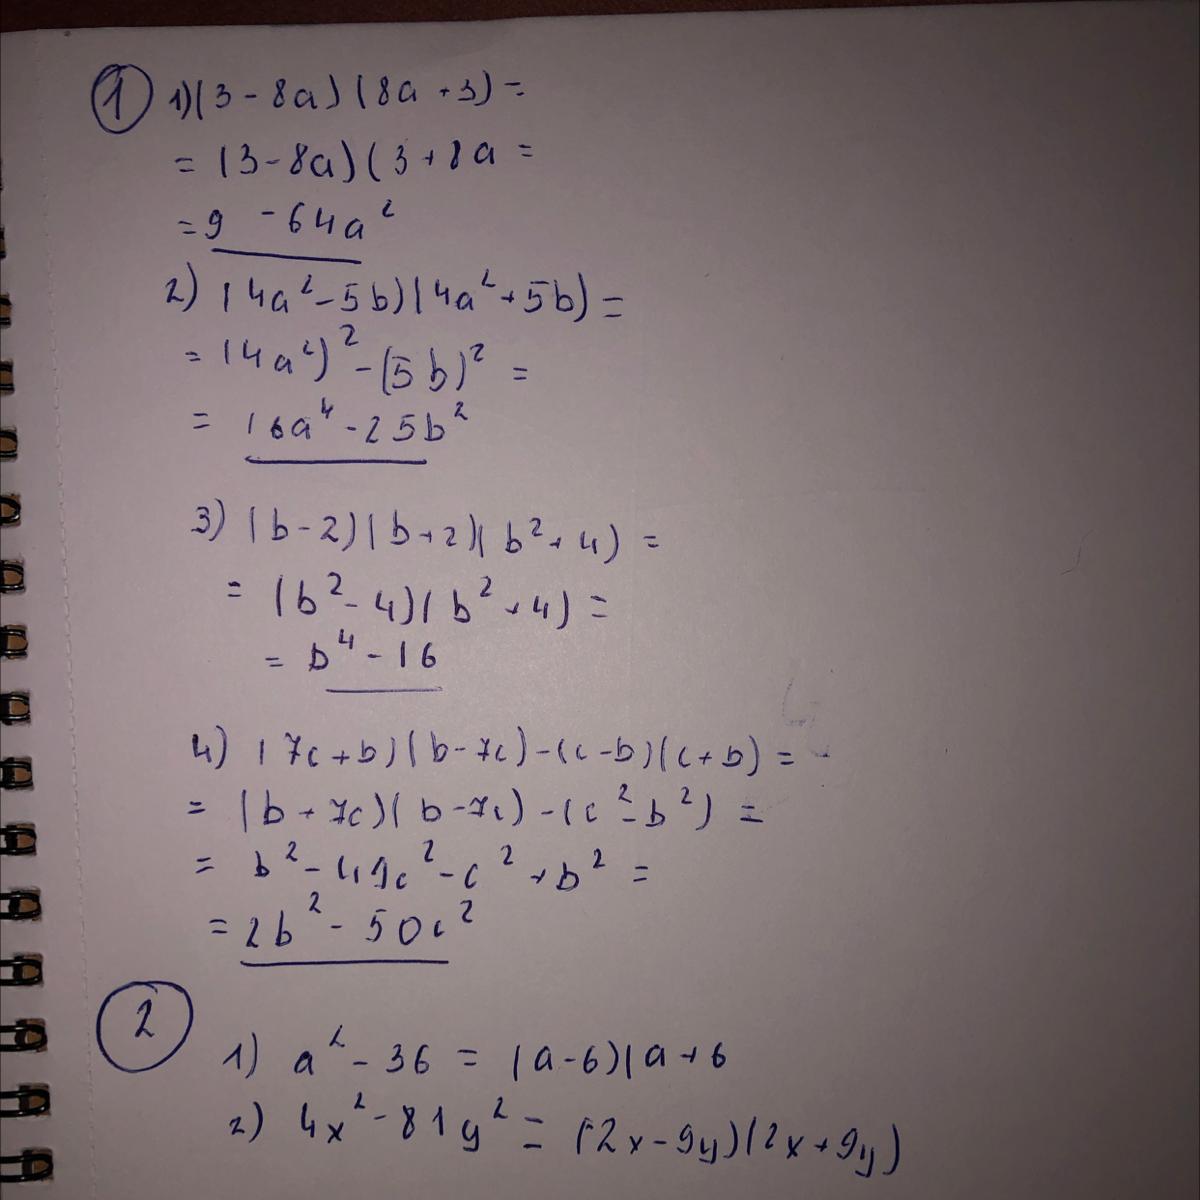 1 1) (3 - 8a) (8a + 3) =
= (3 - 8a) (3 + 8a =
= 9 - 64a²
2) (4a² - 5b) (4a² + 5b) =
= (4a²)² - (5b)² =
= 16a⁴ - 25b²
3) (b - 2) (b + 2) (b² + 4) =
= (b² - 4) (b² + 4) =
= b⁴ - 16
4) (7c + b) (b - 7c) - (c - b) (c + b) =
= (b + 7c) (b - 7c) - (c² - b²) =
= b² - 49c² - c² + b² =
= 2b² - 50c²
2
1) a² - 36 = (a - 6) (a + 6
2) 4x² - 81y² = (2x - 9y) (2x + 9y)